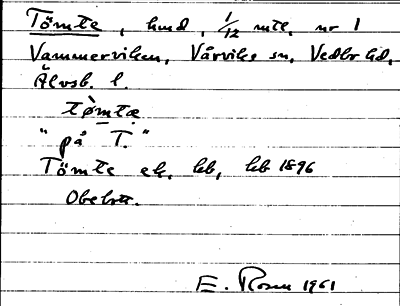 Tömte, hmd, 1/12 mtl, nr 1
Vammerviken, Vårviks sn, Vedbo hd,
Älvsb. l.
tömtæ
"på T."
Tömte ek. kb, hb 1896
Obebott.
E. Rosén 1961